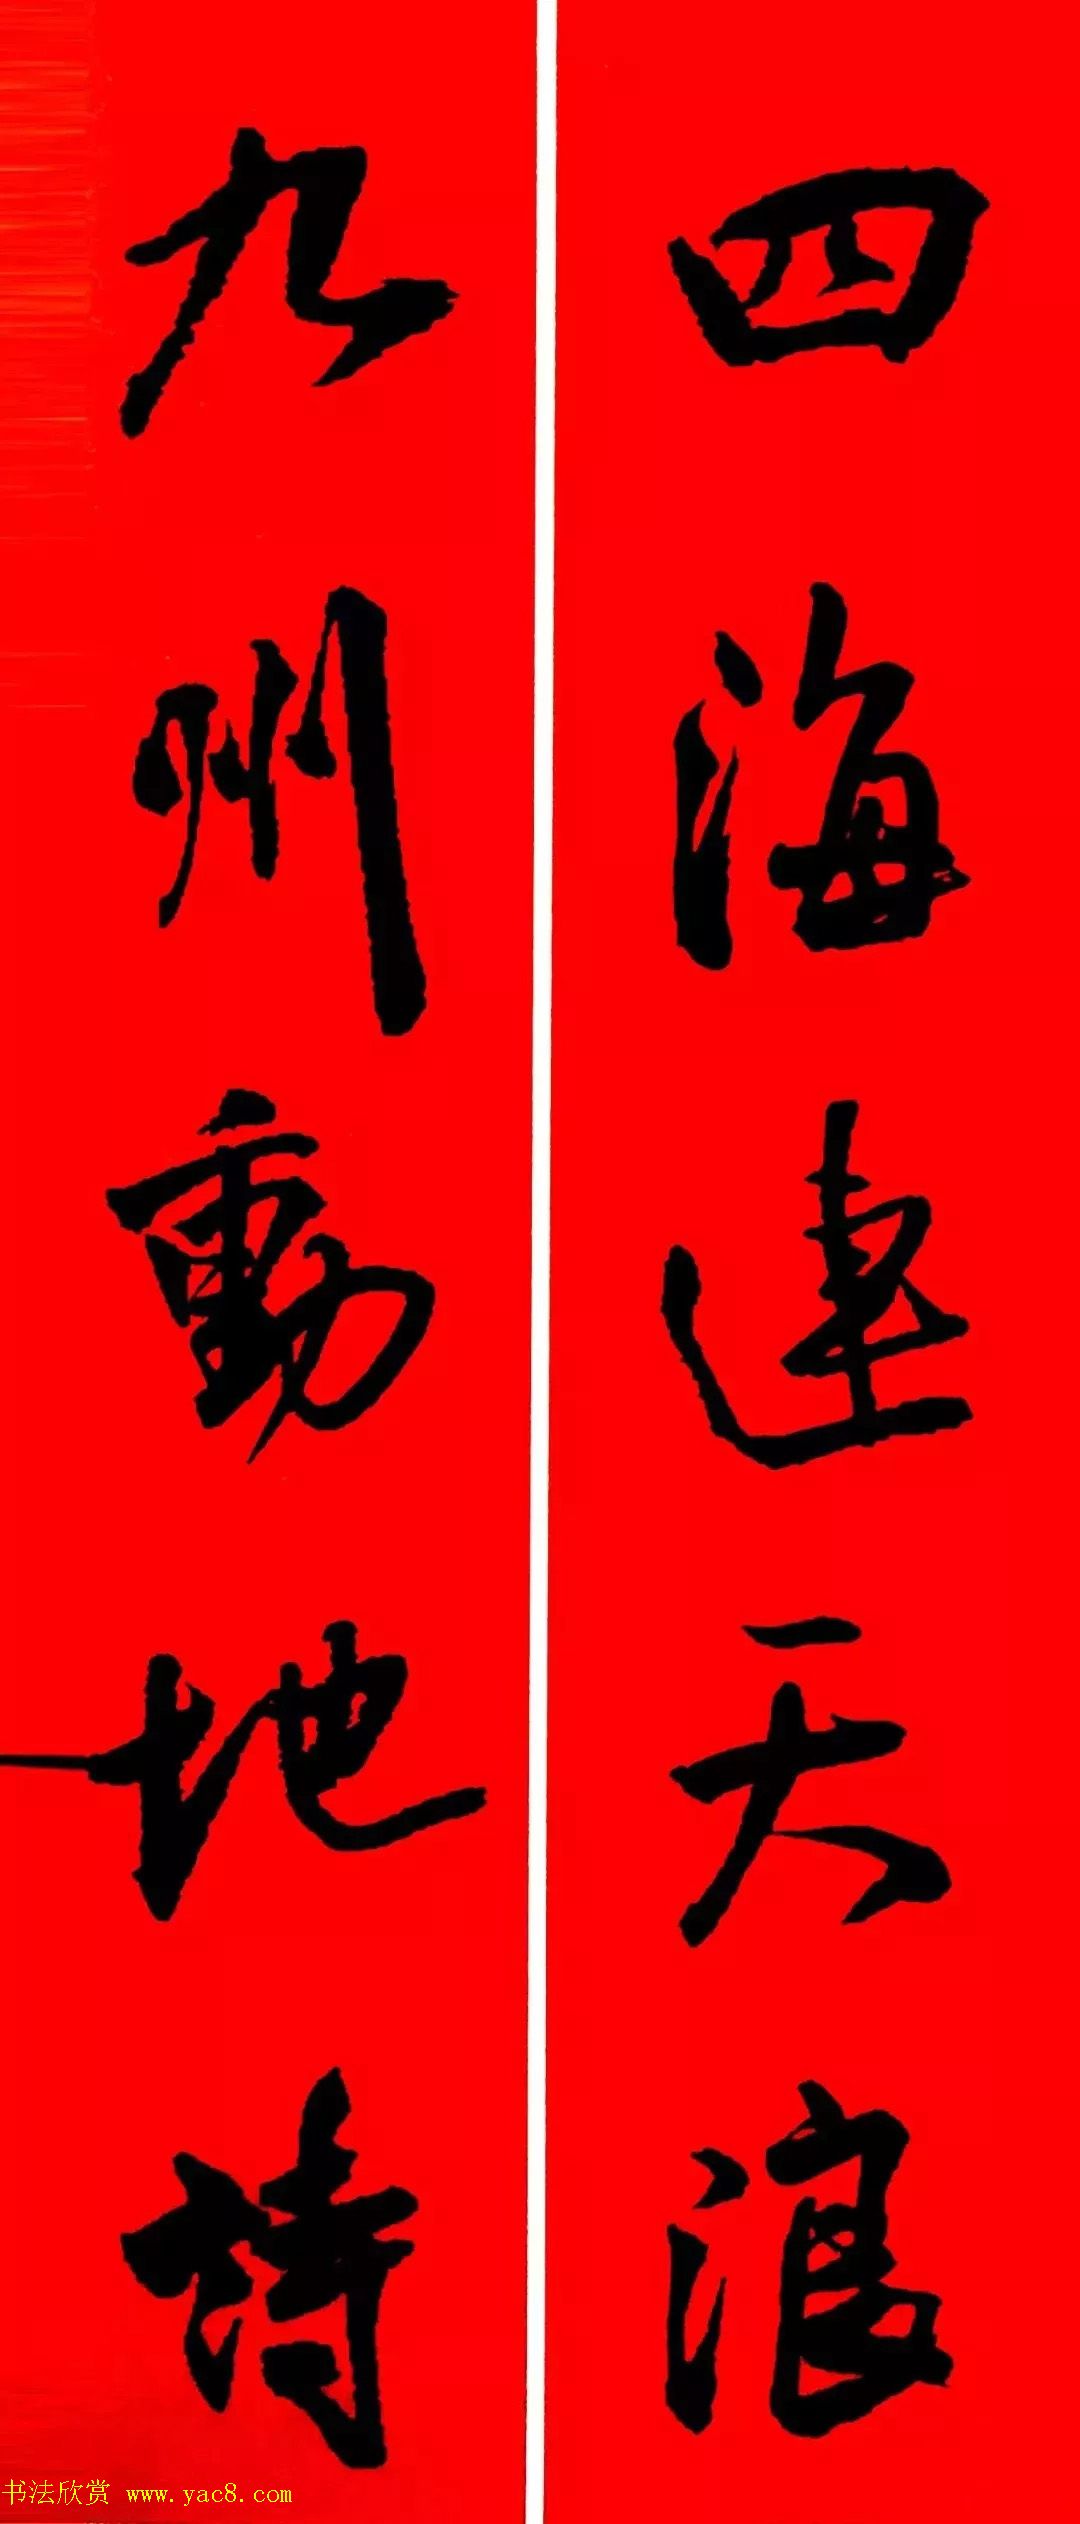 四海连天浪
九州動地詩
书法欣赏 www.yac8.com